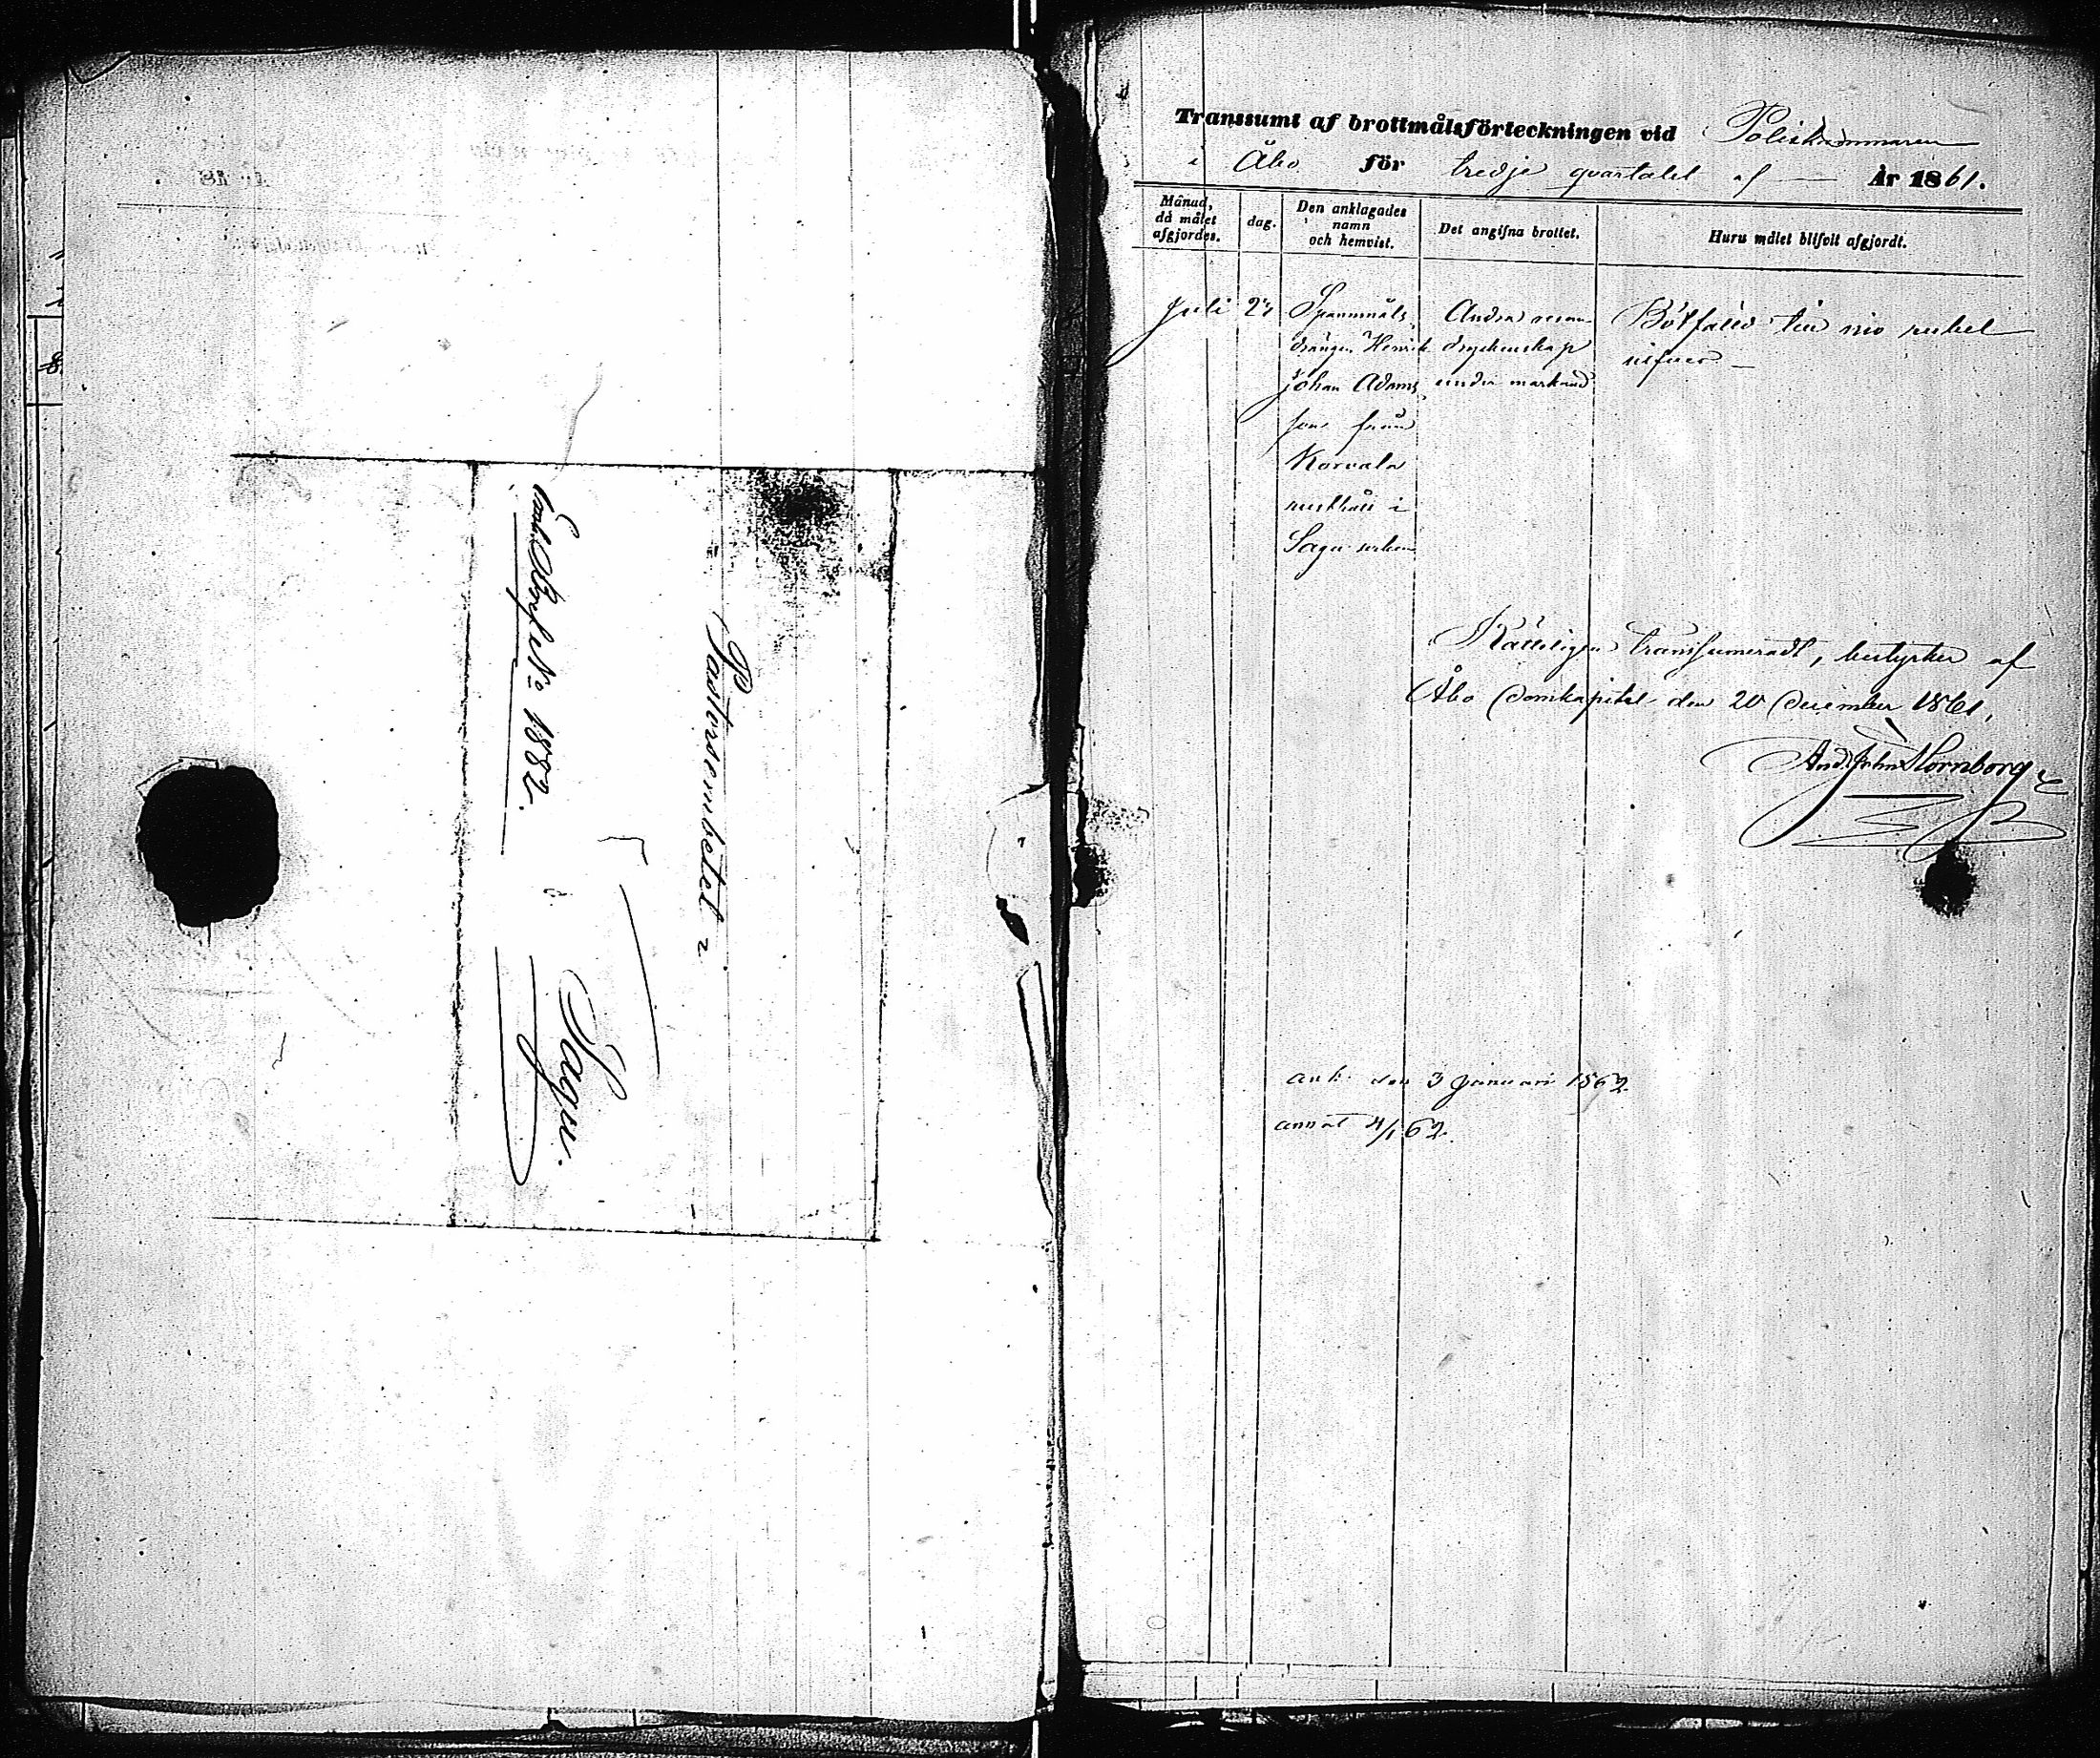 Pastorsembetet
i
Sagu.
Bref No 1882.
Transsumt af brottmålsförteckningen vid Poliskammaren
i Åbo för tredje qvartalet af År 1861.
Månad, då målet afgjordes.
dag.
Den anklagades namn och hemvist.
Det angifna brottet.
Huru målet blifvit afgjordt.
Juli
Spanmåls
drängen Henrik
Johan Adams
son från
Korvala
rusthåll i
Sagu socken
Andra resan
dryckenskap
under marknad
Bötfälld till nio rubel
silfver
Rätteligen transsumeradt, bestyrker af
Åbo Domkapitel den 20 December 1861.
And. John Hornborg
ank. den 3 Januari 1862
annot 4/1 62.